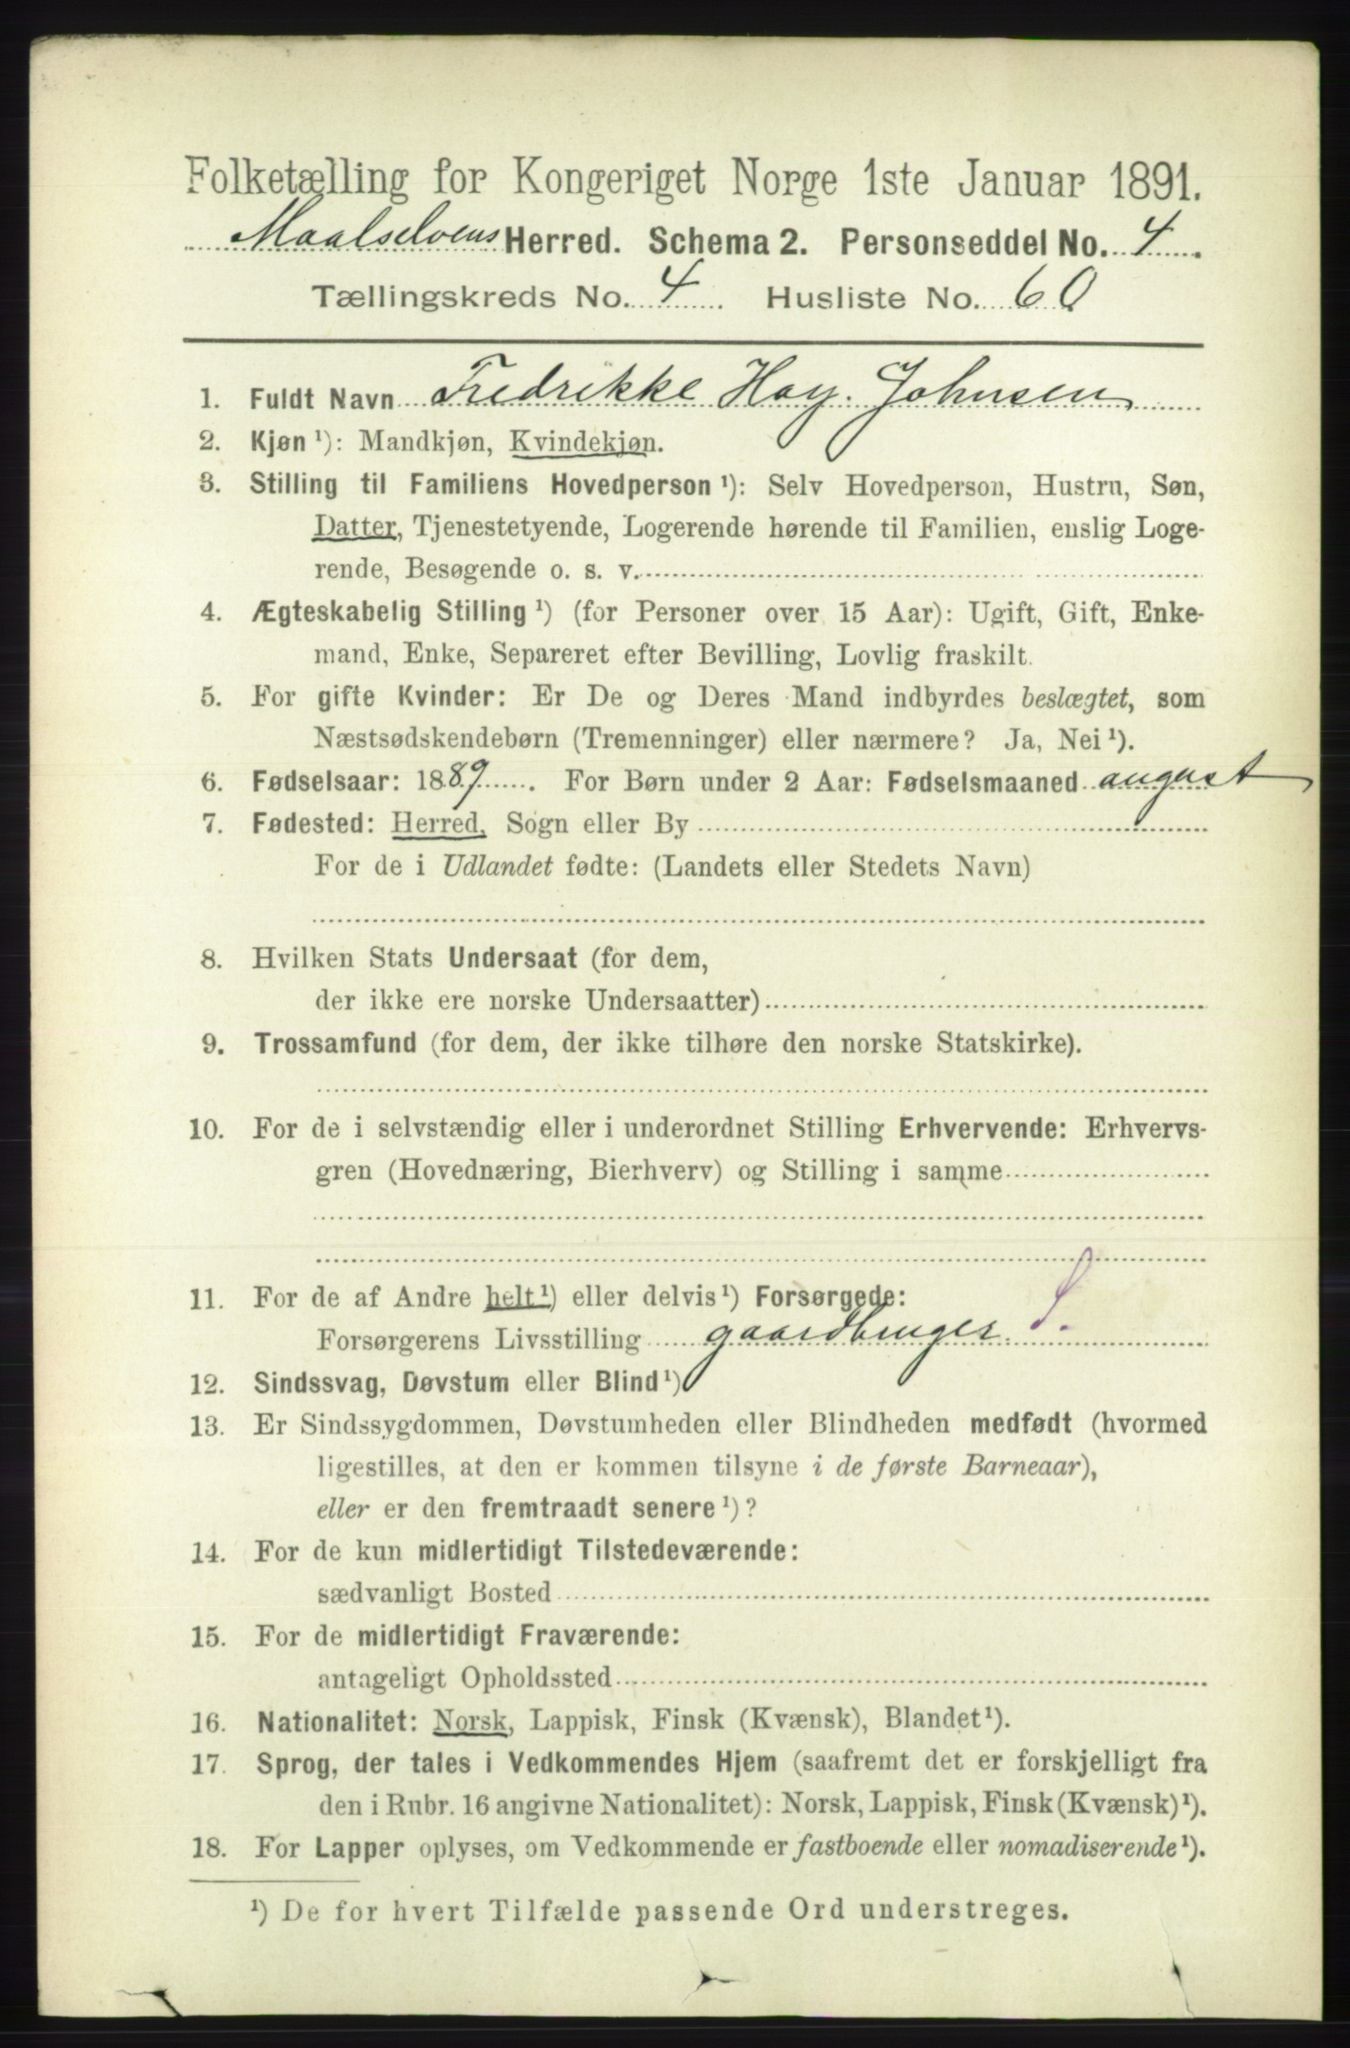 Folketælling for Kongeriget Norge 1ste Januar 1891.
Maalselvens Herred. Schema 2. Personseddel No. 4.
Tællingskreds No. 4. Husliste No. 60
1. Fuldt Navn Fredrikke Hay. Johnsen
2. Kjøn ¹): Mandkjøn, Kvindekjøn.
3. Stilling til Familiens Hovedperson ¹): Selv Hovedperson, Hustru, Søn,
Datter, Tjenestetyende, Logerende hørende til Familien, enslig Loge-
rende, Besøgende o. s. v.
4. Ægteskabelig Stilling ¹) (for Personer over 15 Aar): Ugift, Gift, Enke-
mand, Enke, Separeret efter Bevilling, Lovlig fraskilt.
5. For gifte Kvinder: Er De og Deres Mand indbyrdes beslægtet, som
Næstsødskendebørn (Tremenninger) eller nærmere? Ja, Nei ¹).
6. Fødselsaar: 1889. For Børn under 2 Aar: Fødselsmaaned august
7. Fødested: Herred, Sogn eller By
For de i Udlandet fødte: (Landets eller Stedets Navn)
8. Hvilken Stats Undersaat (for dem,
der ikke ere norske Undersaatter)
9. Trossamfund (for dem, der ikke tilhøre den norske Statskirke).
10. For de i selvstændig eller i underordnet Stilling Erhvervende: Erhvervs-
gren (Hovednæring, Bierhverv) og Stilling i samme
11. For de af Andre helt ¹) eller delvis ¹) Forsørgede: S.
Forsørgerens Livsstilling gaardbruger
12. Sindssvag, Døvstum eller Blind ¹)
13. Er Sindssygdommen, Døvstumheden eller Blindheden medfødt (hvormed
ligestilles, at den er kommen tilsyne i de første Barneaar),
eller er den fremtraadt senere ¹)?
14. For de kun midlertidigt Tilstedeværende:
sædvanligt Bosted
15. For de midlertidigt Fraværende:
antageligt Opholdssted
16. Nationalitet: Norsk, Lappisk, Finsk (Kvænsk), Blandet ¹).
17. Sprog, der tales i Vedkommendes Hjem (saafremt det er forskjelligt fra
den i Rubr. 16 angivne Nationalitet): Norsk, Lappisk, Finsk (Kvænsk) ¹).
18. For Lapper oplyses, om Vedkommende er fastboende eller nomadiserende ¹).
¹) De for hvert Tilfælde passende Ord understreges.